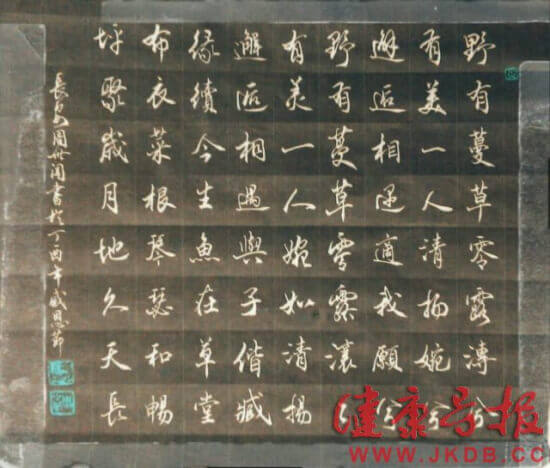 野有蔓草零露漙兮
有美一人清揚婉兮
邂逅相遇適我願兮
野有蔓草零露瀼々
有美一人婉如清揚
邂逅相遇與子偕臧
緣續今生魚在草堂
布衣菜根琴瑟和暢
坪聚歲月地久天長
周世闻書於丁酉年感恩節
健康导报
WWW.JKDB.CC